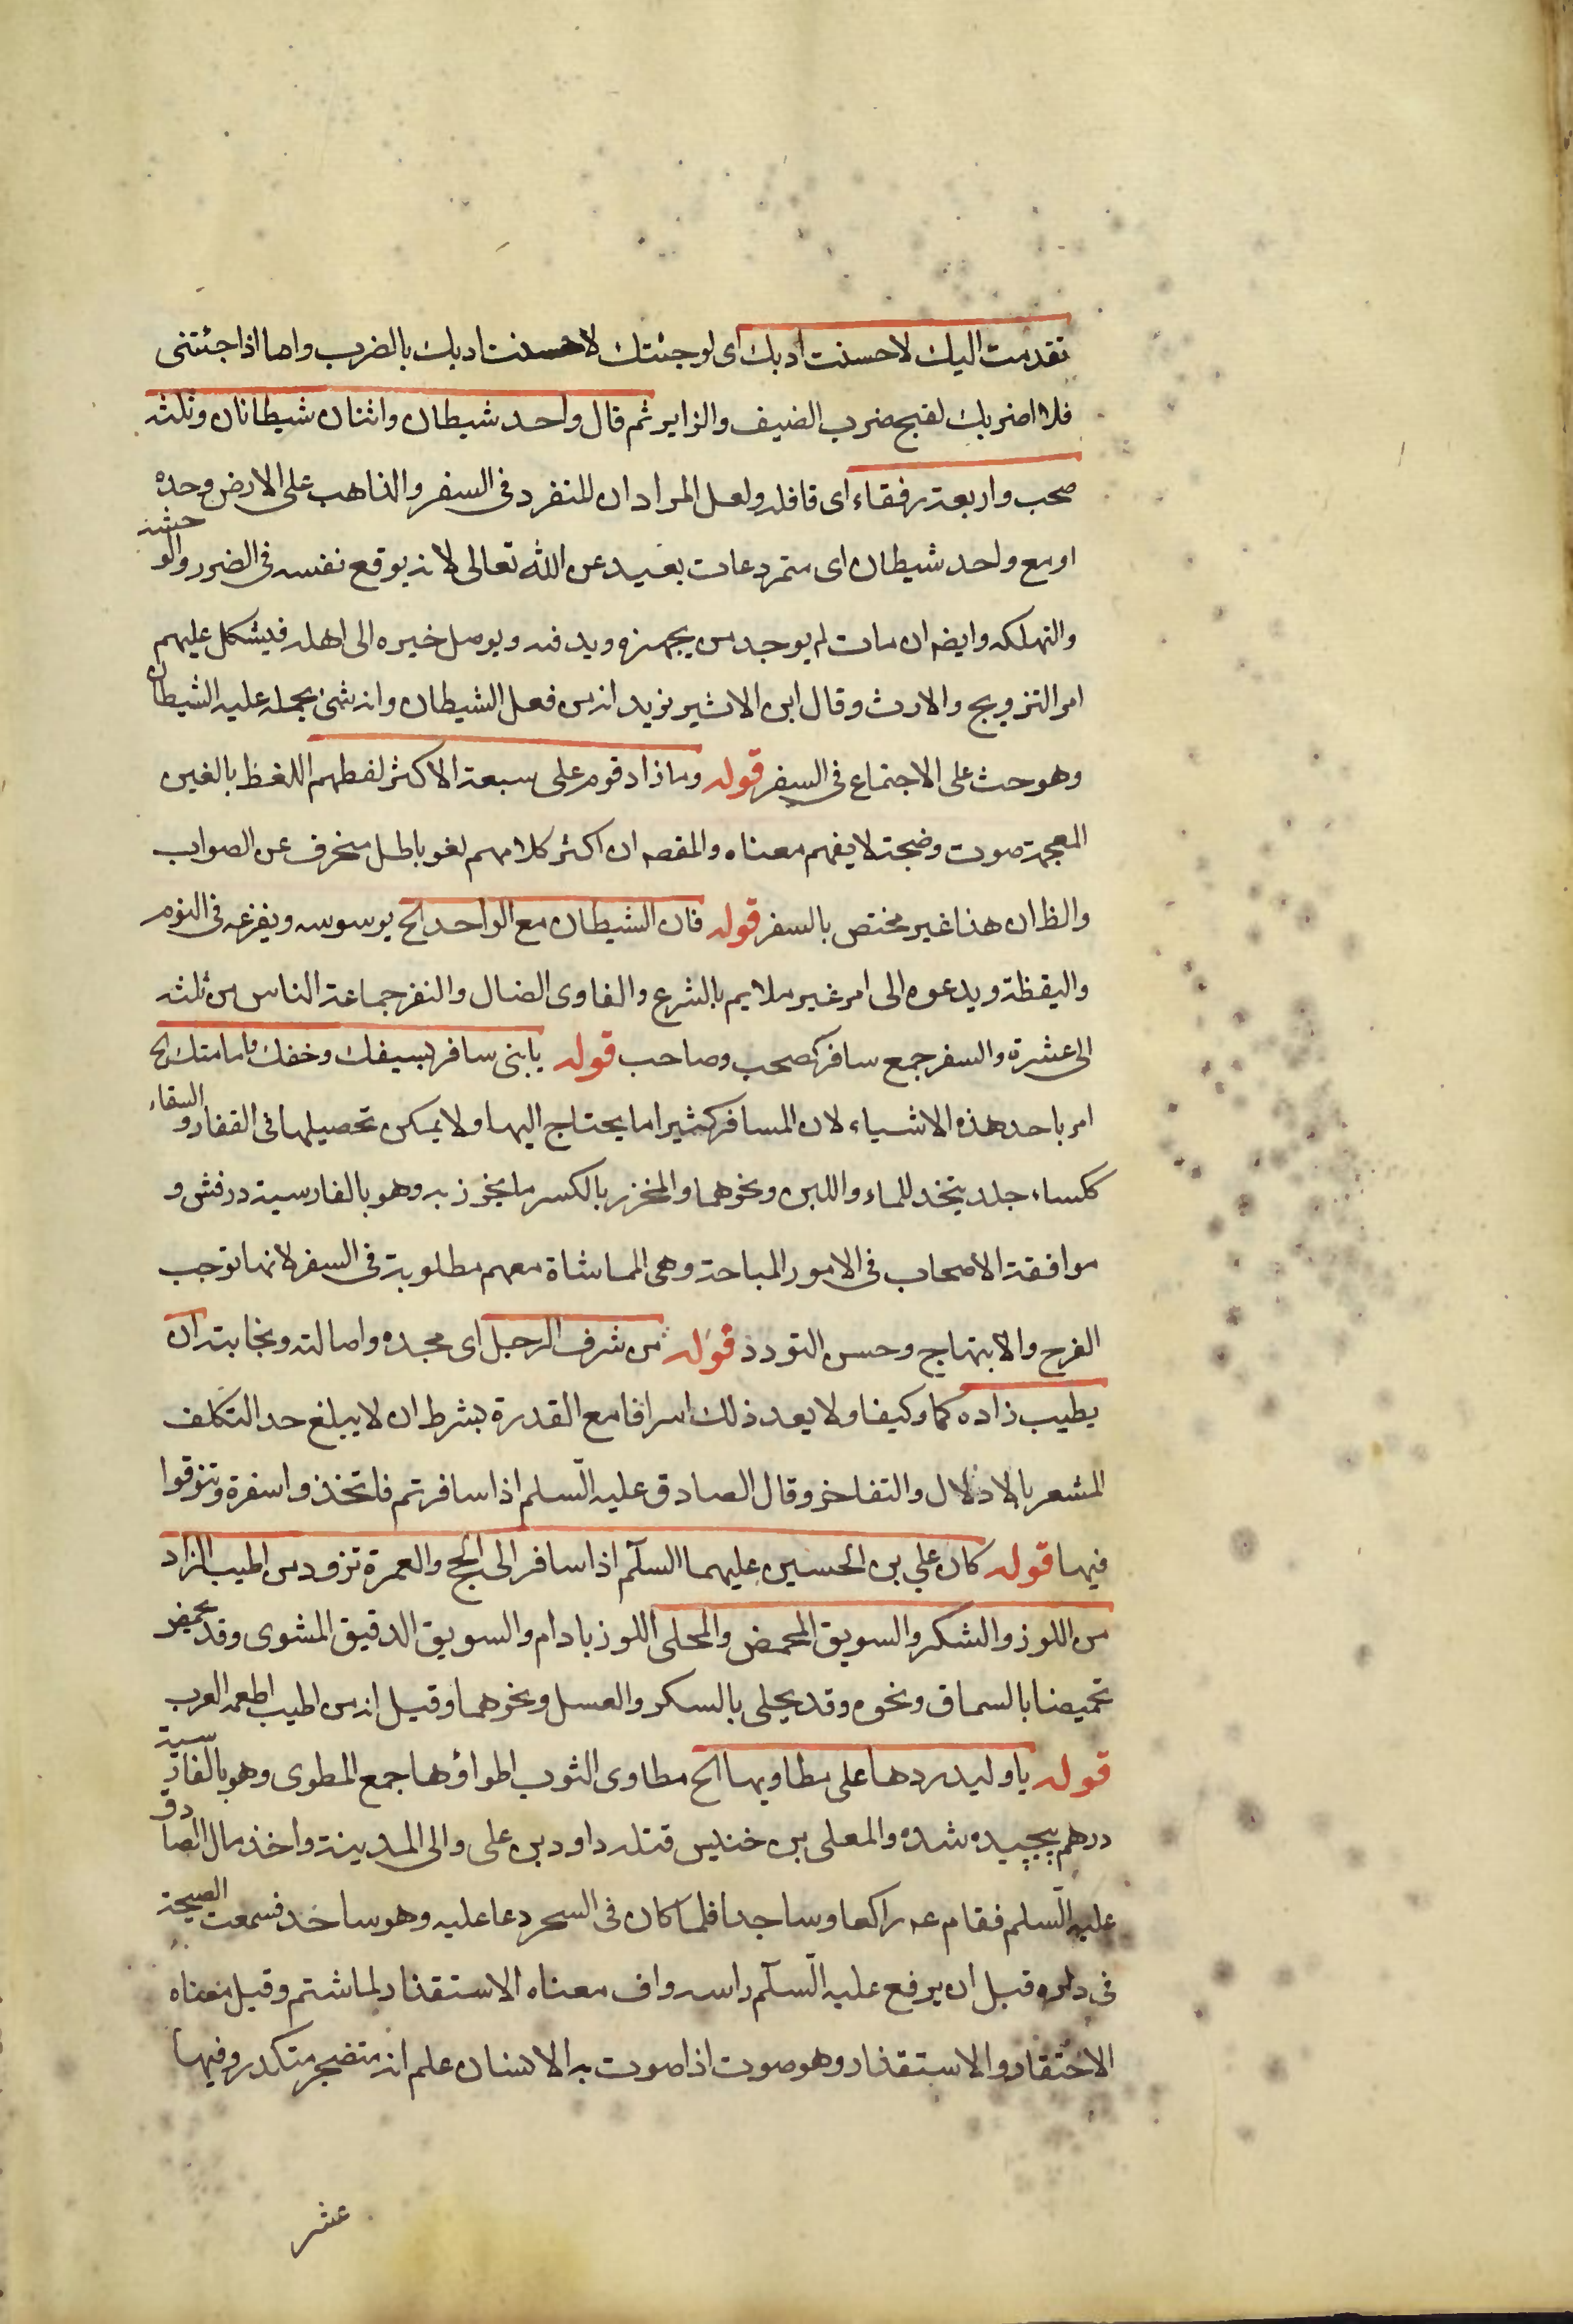 تقدمت اليك لاحسنت ادبك اى لو جئتك لاحسنت ادبك بالضرب واما اذا جئتنى
فلا اضربك لقبح ضرب الضيف والزاير ثم قال واحد شيطان واثنان شيطانان وثلثه
صحب واربعة رفقاء اى قافله ولعل المراد ان المنفرد فى السفر والذاهب على الارض وحده
او مع واحد شيطان اى متمرد عات بعيد عن الله تعالى لانه يوقع نفسه فى الضرر والوحشه
والتهلكه وايضه ان مات لم يوجد من يجهزه ويدفنه ويوصل خبره الى اهله فيشكل عليهم
امر التزويج والارث وقال ابن الاثير نريد انه من فعل الشيطان وانه شئ يحمله عليه الشيطان
وهو حث على الاجتماع فى السفر قوله وما زاد قوم على سبعة الا كثر لغطهم اللغظ بالغين
المعجمة صوت وضجة لا يفهم معناه والمقصه ان اكثر كلامهم لغو باطل منحرف عن الصواب
والظ ان هذا غير مختص بالسفر قوله فان الشيطان مع الواحد الخ يوسوسه ويفزعه فى النوم
واليقظة ويدعوه الى امر غير ملايم بالشرع والغاوى الضال والنفر جماعة الناس من ثلثه
الى عشرة والسفر جمع سافر كصحب وصاحب قوله يا بنى سافر بسيفك وخفك وعمامتك الخ
امر باحد هذه الاشياء لان المسافر كثيرا ما يحتاج اليها ولا يمكن تحصيلها فى القفار والسقاء
ككساء جلد يتخذ للماء واللبن ونحوهما والمخرز بالكسر ما يخرز به وهو بالفارسية درفش و
موافقة الاصحاب فى الامور المباحة وهى المماشاة معهم مطلوبة فى السفر لانها توجب
الفرح والابتهاج وحسن التودد قوله من شرف الرجل اى مجده واصالته ونجابته ان
يطيب زاده كما وكيفا ولا يعد ذلك اسرافا مع القدرة بشرط ان لا يبلغ حد التكلف
المشعر بالاذلال والتفاخر وقال الصادق عليه السلم اذا سافرتم فاتخذوا سفرة وتنوقوا
فيها قوله كان علي بن الحسين عليهما السلم اذا سافر الى الحج والعمرة تزود من اطيب الزاد
من اللوز والسكر والسويق المحمض والمحلى اللوز بادام والسويق الدقيق المشوى وقد يحمض
تحميضا بالسماق ونحوه وقد يحلى بالسكر والعسل ونحوهما وقيل انه من اطيب اطعمه العرب
قوله يا وليد ردها على مطاويها الخ مطاوى الثوب اطواؤها جمع المطوى وهو بالفارسية
درهم پيچيده شده والمعلى بن خنيس قتله داود بن على والى المدينة واخذ مال الصادق
عليه السلم فقام عه راكعا وساجدا فلما كان فى السحر دعا عليه وهو ساجد فسمعت الصيحة
فى داره قبل ان يرفع عليه السلم راسه واف معناه الاستقذار لما شتم وقيل معناه
الاحتقار والاستقذار وهو صوت اذا صوت به الانسان علم انه متضجر متكدر وفيها
عشر